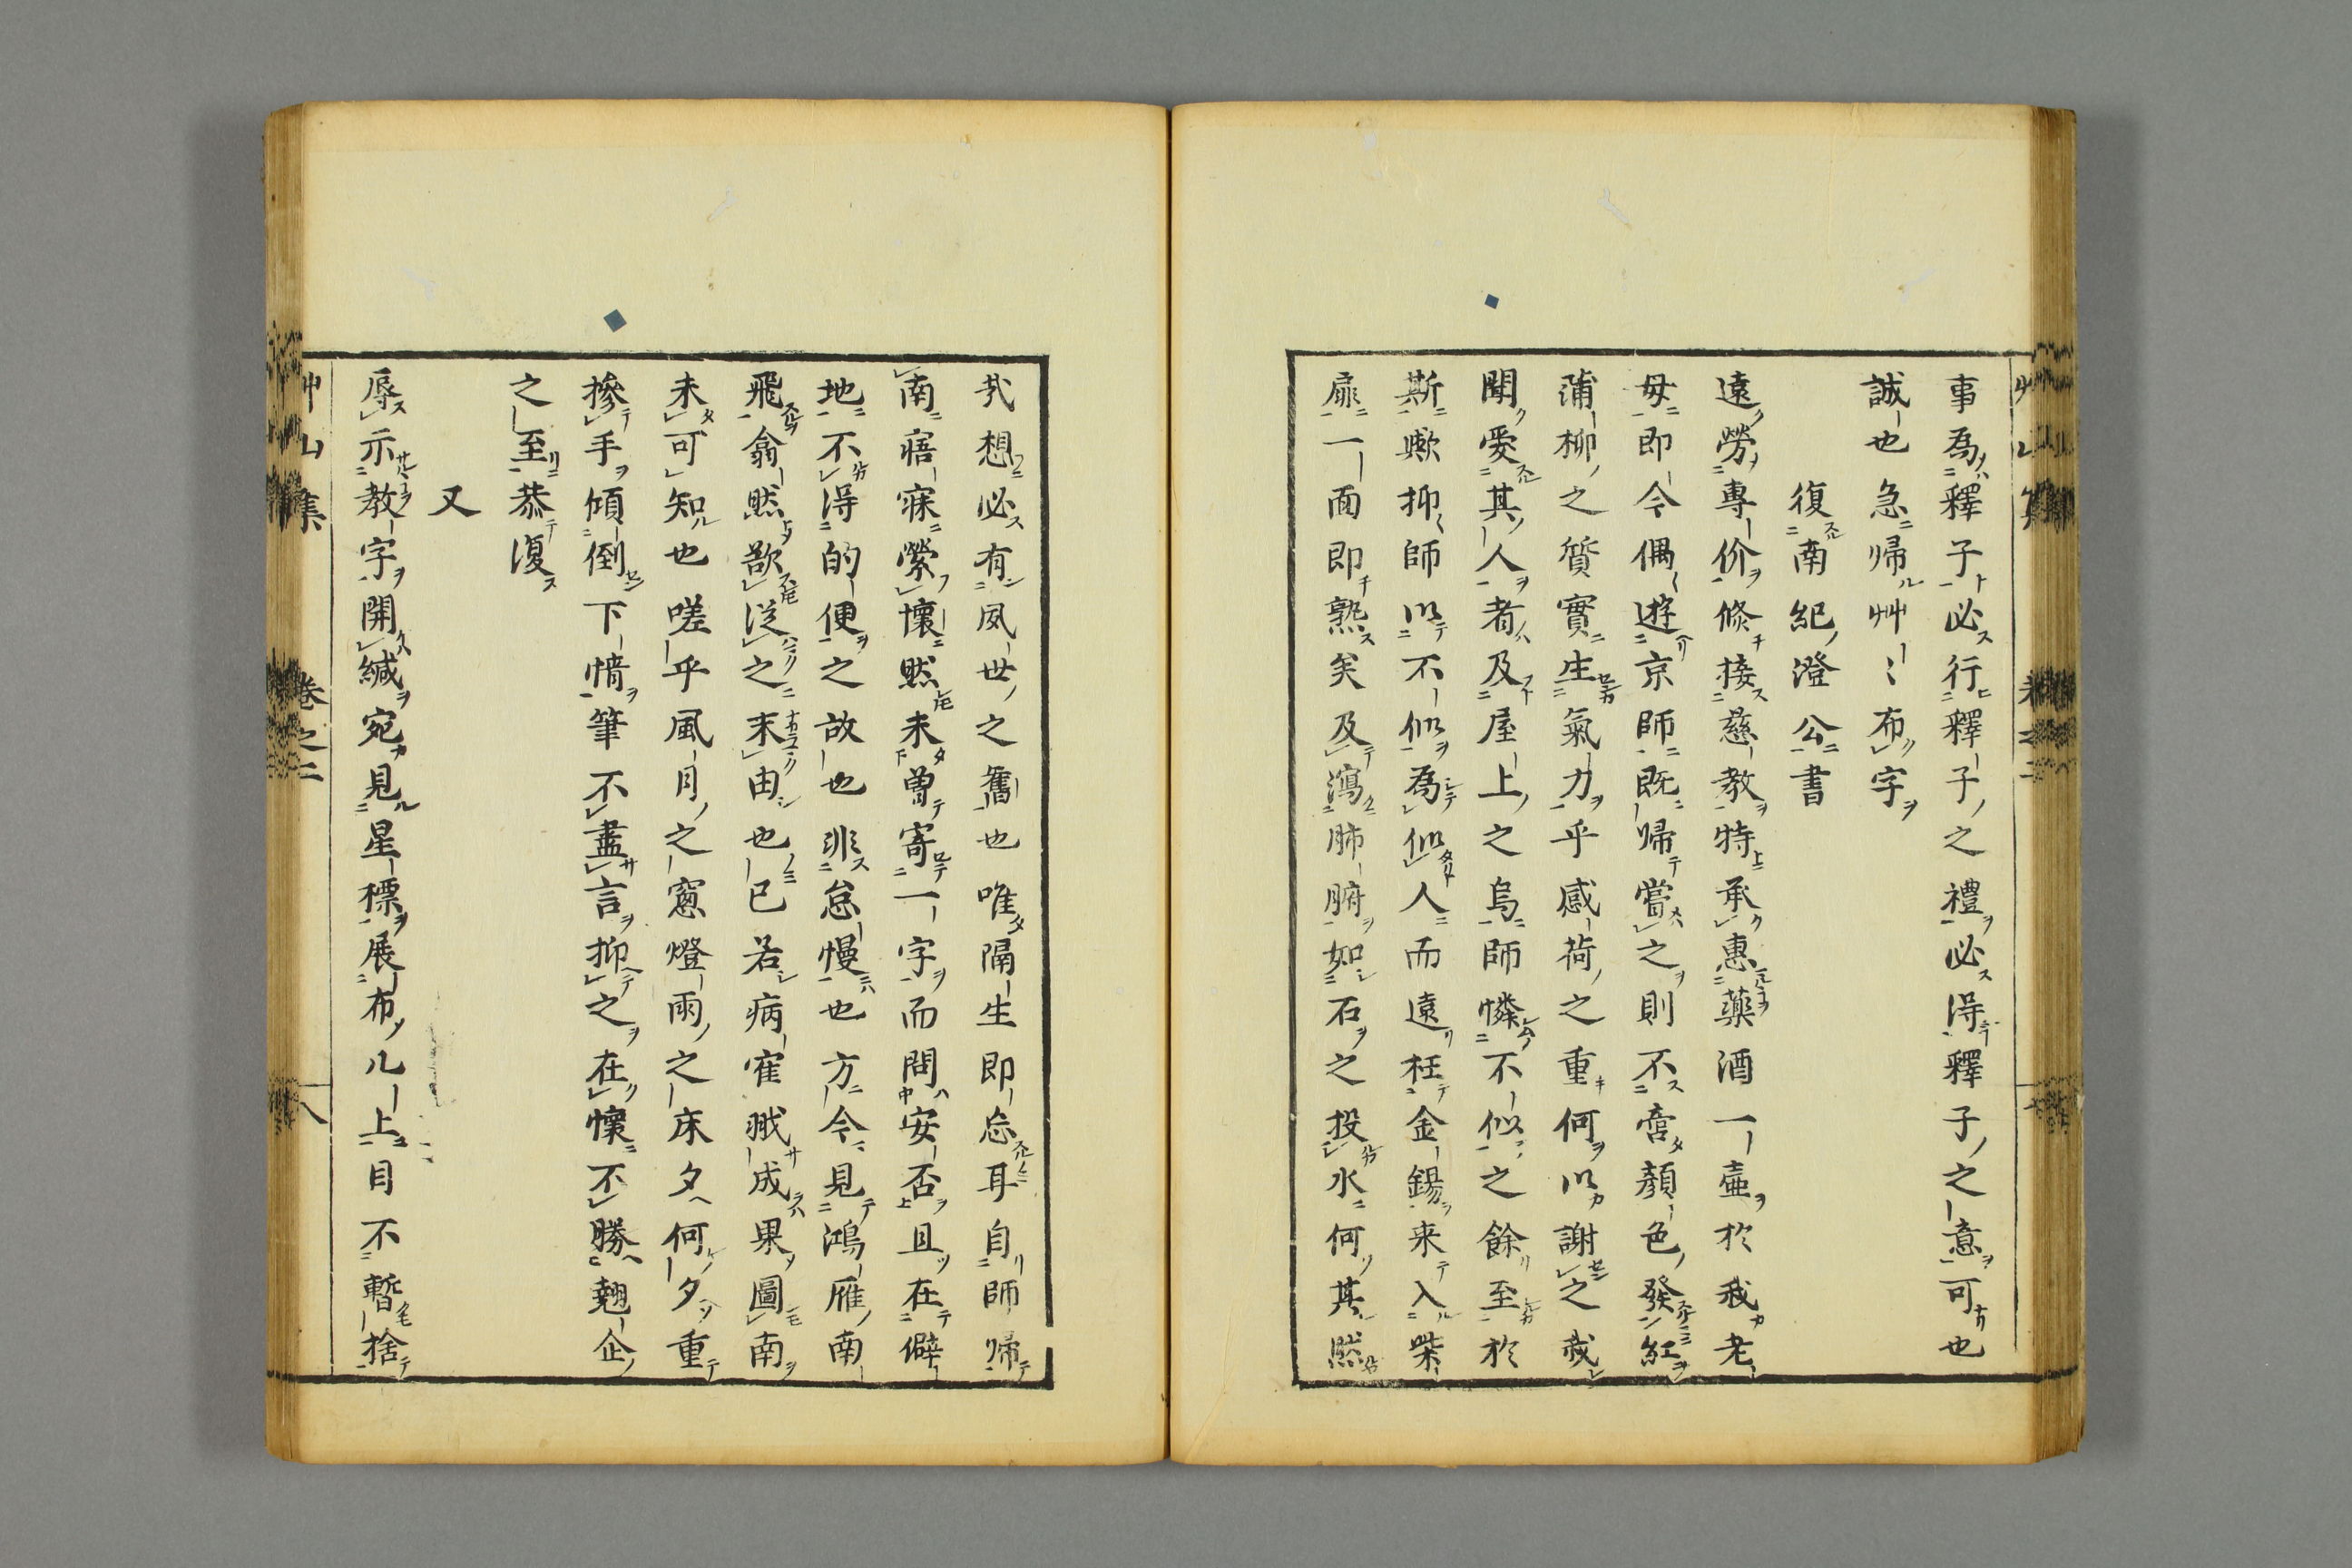 事為釋子必行釋子之禮必得釋子之意可也
誠也急帰艸〻布字
復南紀澄公書
遠勞專价倏接慈教特承惠藥酒一壷於我老
母即今偶遊京師既帰嘗之則不啻顔色發紅
蒲柳之質實生氣力乎感荷之重何以謝之哉
聞愛其人者及屋上之烏師憐不似之餘至於
斯歟抑師以不似為似人而遠枉金錫来入柴
扉一面即熟矣及瀉肺腑如石之投水何其然
哉想必有夙世之舊也唯隔生即忘耳自師帰
南寤寐縈懷然未曾寄一字而問安否且在僻
地不得的便之故也非怠慢也方今見鴻雁南
飛翕然欲從之末由也已若病寉戕成果圖南
未可知也嗟乎風月之窓燈雨之床夕何夕重
摻手傾倒下情筆不盡言抑之在懷不勝翹企
之至恭復
又
辱示教字開緘宛見星標展布几上目不暫捨
艸山集 卷之二 八